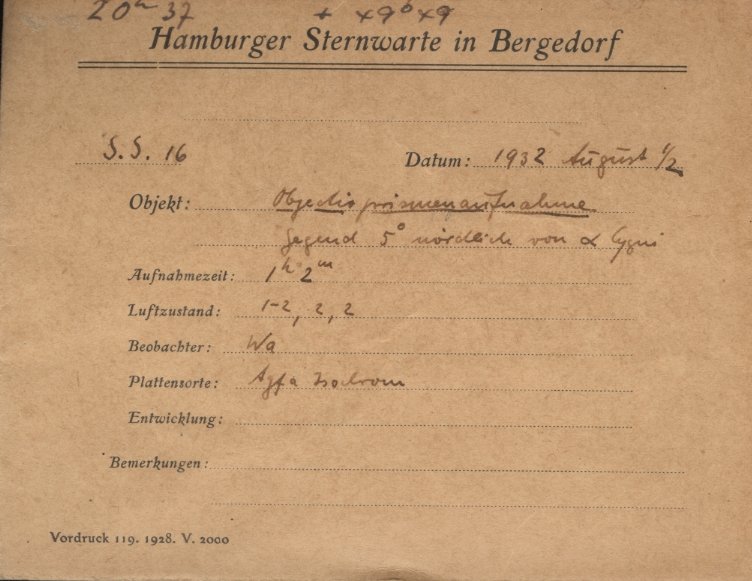 20h 37 + 49° 49
Hamburger Sternwarte in Bergedorf
S.S. 16
Datum: 1932 August 1/2
Objekt: Objectivprismenaufnahme
Gegend 5° nördlich von α Cygni
Aufnahmezeit: 1h 2m
Luftzustand: 1-2, 2, 2
Beobachter: Wa
Plattensorte: Agfa Isochrom
Entwicklung:
Bemerkungen:
Vordruck 119. 1928. V. 2000